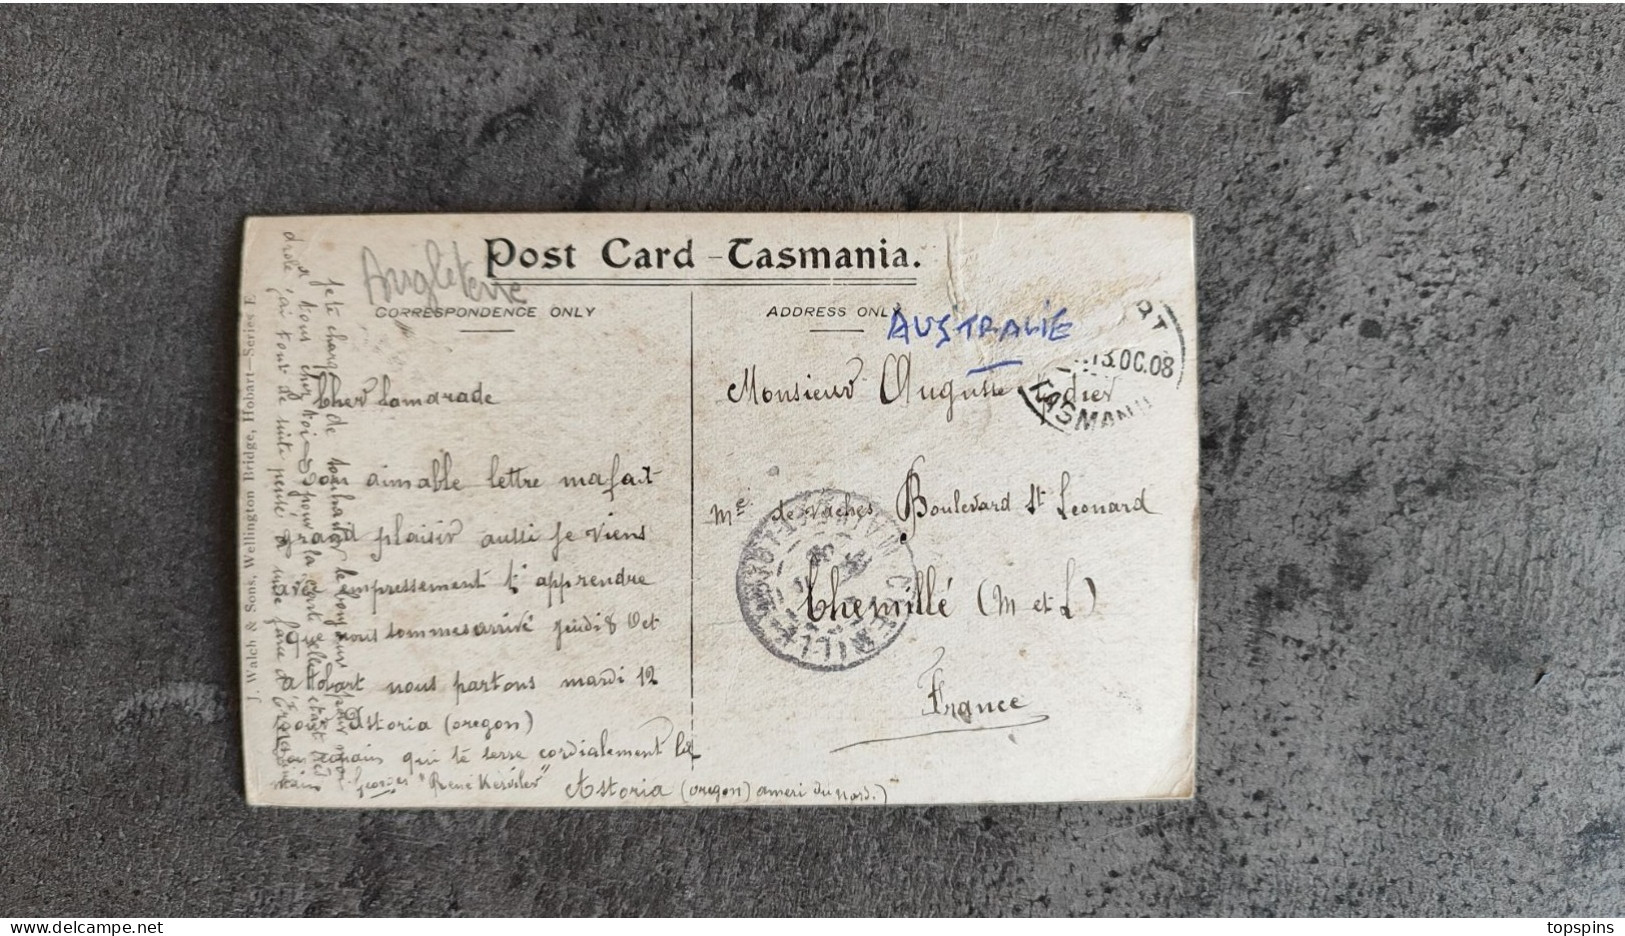 Post Card - Tasmania.
Angleterre
CORRESPONDENCE ONLY
ADDRESS ONLY
AUSTRALIE
13.OC.08
TASMANI
Cher Camarade
Ton aimable lettre ma fait
grand plaisir aussi je viens
avec empressement t'apprendre
que nous sommes arrivé jeudi 8 Oct
à Hobart nous partons mardi 12
pour Astoria (oregon)
qui te serre cordialement la
Georges "René Kerviler" Astoria (oregon) ameri du nord.)
Monsieur Auguste
Mre de vaches Boulevard St Léonard
Chemillé (M et L)
France
CHEMILLE
J. Walch & Sons, Wellington Bridge, Hobart—Series E.
je te charge de souhaiter le bonjour pour moi
à tous chez toi pour la
drôle j'ai tout de suite pensé à
topspins